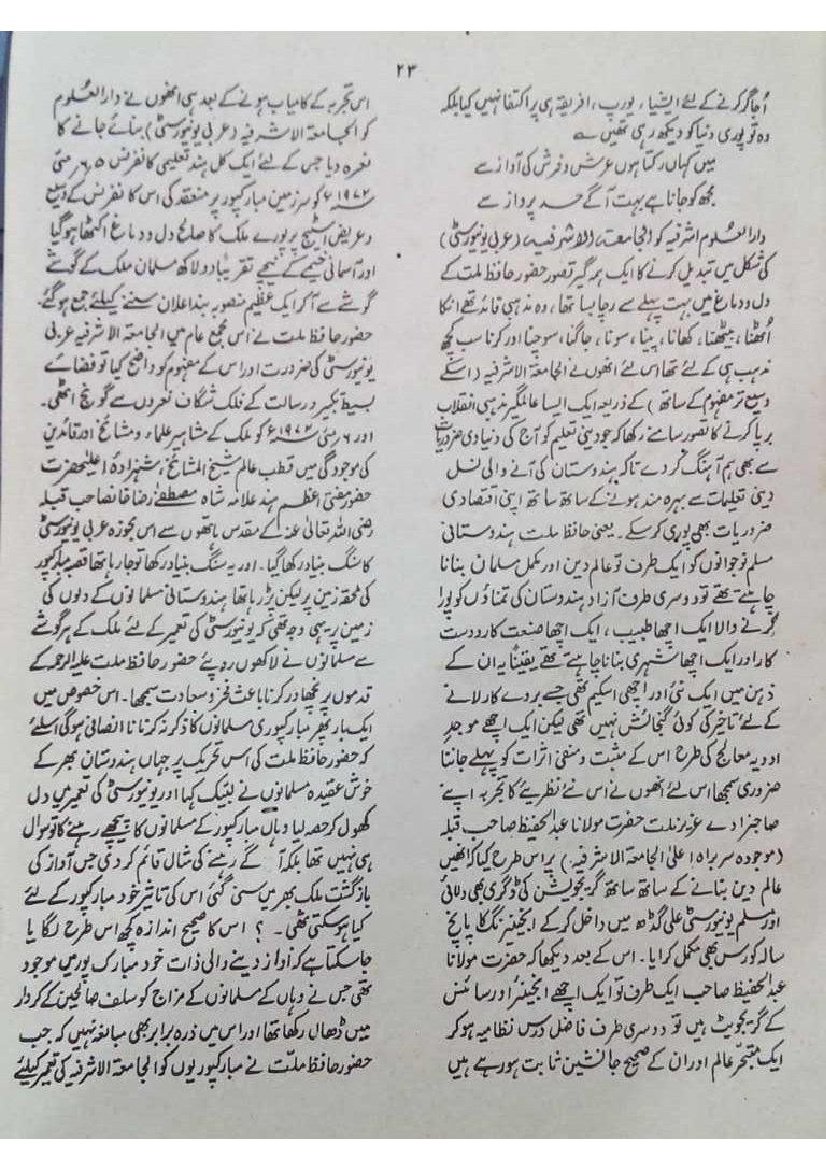 ۲۳
اُجاگر کرنے کے لئے ایشیا، یورپ، افریقہ ہی پر اکتفا نہیں کیا بلکہ
وہ تو پوری دنیا کو دیکھ رہی تھیں ے
میں کہاں رکتا ہوں عرش و فرش کی آواز سے
مجھ کو جانا ہے بہت آگے حد پرواز سے
دارالعلوم اشرفیہ کو الجامعۃ الاشرفیہ (عربی یونیورسٹی)
کی شکل میں تبدیل کرنے کا ایک ہمہ گیر تصور حضور حافظ ملت کے
دل و دماغ میں بہت پہلے سے رچا بسا تھا، وہ مذہبی قائد تھے انکا
اُٹھنا، بیٹھنا، کھانا، پینا، سونا، جاگنا، سوچنا اور کرنا سب کچھ
مذہب ہی کے لئے تھا اس لئے انھوں نے الجامعۃ الاشرفیہ (اسکے
وسیع تر مفہوم کے ساتھ) کے ذریعہ ایک ایسا عالمگیر مذہبی انقلاب
برپا کرنے کا تصور سامنے رکھا کہ جو دینی تعلیم کو آج کی دنیاوی ضروریات
سے بھی ہم آہنگ کر دے تاکہ ہندوستان کی آنے والی نسل
دینی تعلیمات سے بہرہ مند ہونے کے ساتھ ساتھ اپنی اقتصادی
ضروریات بھی پوری کر سکے۔ یعنی حافظ ملت ہندوستانی
مسلم نوجوانوں کو ایک طرف تو عالم دین اور مکمل مسلمان بنانا
چاہتے تھے تو دوسری طرف آزاد ہندوستان کی تمناؤں کو پورا
کرنے والا ایک اچھا طبیب، ایک اچھا صنعت کار دوست
کار اور ایک اچھا شہری بنانا چاہتے تھے یقیناً یہ ان کے
ذہن میں ایک نئی اور اچھی اسکیم تھی جسے بروے کار لانے
کے لئے تاخیر کی کوئی گنجائش نہیں تھی لیکن ایک اچھے موجد
ادویہ معالج کی طرح اس کے مثبت و منفی اثرات کو پہلے جانتا
ضروری سمجھا اس لئے انھوں نے اس نئے نظریئے کا تجربہ اپنے
صاحبزادے عزیز ملت حضرت مولانا عبدالحفیظ صاحب قبلہ
(موجودہ سربراہ اعلیٰ الجامعۃ الاشرفیہ) پر اس طرح کیا کہ انھیں
عالم دین بنانے کے ساتھ ساتھ گریجویشن کی ڈگری بھی دلائی
اور مسلم یونیورسٹی علی گڈھ میں داخل کر کے انجینیرنگ کا پانچ
سالہ کورس بھی مکمل کرایا۔ اس کے بعد دیکھا کہ حضرت مولانا
عبدالحفیظ صاحب ایک طرف تو ایک اچھے انجینئر اور سائنس
کے گریجویٹ ہیں تو دوسری طرف فاضل درس نظامیہ ہو کر
ایک متبحر عالم اور ان کے صحیح جانشین ثابت ہو رہے ہیں
اس تجربہ کے کامیاب ہونے کے بعد ہی انھوں نے دارالعلوم
کو الجامعۃ الاشرفیہ (عربی یونیورسٹی) بنائے جانے کا
نعرہ دیا جس کے لئے ایک کل ہند تعلیمی کانفرنس ۵، ۶ مئی
۱۹۷۲ء کو سرزمین مبارکپور پر منعقد کی اس کانفرنس کے وسیع
و عریض اسٹیج پر پورے ملک کا صالح دل و دماغ اکٹھا ہو گیا
اور آسمانی خیمے کے نیچے تقریباً دو لاکھ مسلمان ملک کے گوشے
گوشے سے آ کر ایک عظیم منصوبہ بند اعلان سننے کیلئے جمع ہو گئے
حضور حافظ ملت نے اس مجمع عام میں الجامعۃ الاشرفیہ عربی
یونیورسٹی کی ضرورت اور اس کے مفہوم کو واضح کیا تو فضائے
بسیط تکبیر و رسالت کے فلک شگاف نعروں سے گونج اٹھی۔
اور ۶ مئی ۱۹۷۲ء کو ملک کے مشاہیر علماء و مشائخ اور قائدین
کی موجودگی میں قطب عالم شیخ المشائخ شہزادۂ اعلیٰحضرت
حضور مفتی اعظم ہند علامہ شاہ مصطفےٰ رضا خانصاحب قبلہ
رضی اللہ تعالیٰ عنہ کے مقدس ہاتھوں سے اس مجوزہ عربی یونیورسٹی
کا سنگ بنیاد رکھا گیا۔ اور یہ سنگ بنیاد رکھا تو جا رہا تھا قصبہ مبارکپور
کی ملحقہ زمین پر لیکن پڑ رہا تھا ہندوستانی مسلمانوں کے دلوں کی
زمین پر یہی وجہ تھی کہ یونیورسٹی کی تعمیر کے لئے ملک کے ہر گوشے
سے مسلمانوں نے لاکھوں روپئے حضور حافظ ملت علیہ الرحمہ کے
قدموں پر نچھاور کرنا باعث فخر و سعادت سمجھا۔ اس خصوص میں
ایک بار پھر مبارکپوری مسلمانوں کا ذکر نہ کرنا نا انصافی ہو گی اسلئے
کہ حضور حافظ ملت کی اس تحریک پر جہاں ہندوستان بھر کے
خوش عقیدہ مسلمانوں نے لبیک کہا اور یونیورسٹی کی تعمیر میں دل
کھول کر حصہ لیا وہاں مبارکپور کے مسلمانوں کا پیچھے رہنے کا تو سوال
ہی نہیں تھا بلکہ آگے رہنے کی مثال قائم کر دی جس آواز کی
بازگشت ملک بھر میں سنی گئی اس کی تاثیر خود مبارکپور کے لئے
کیا ہو سکتی تھی۔ ؟ اس کا صحیح اندازہ کچھ اس طرح لگایا
جا سکتا ہے کہ آواز دینے والی ذات خود مبارک پور میں موجود
تھی جس نے وہاں کے مسلمانوں کے مزاج کو سلف صالحین کے کردار
میں ڈھال رکھا تھا اور اس میں ذرہ برابر بھی مبالغہ نہیں کہ جب
حضور حافظ ملّت نے مبارکپوریوں کو الجامعۃ الاشرفیہ کی تعمیر کیلئے